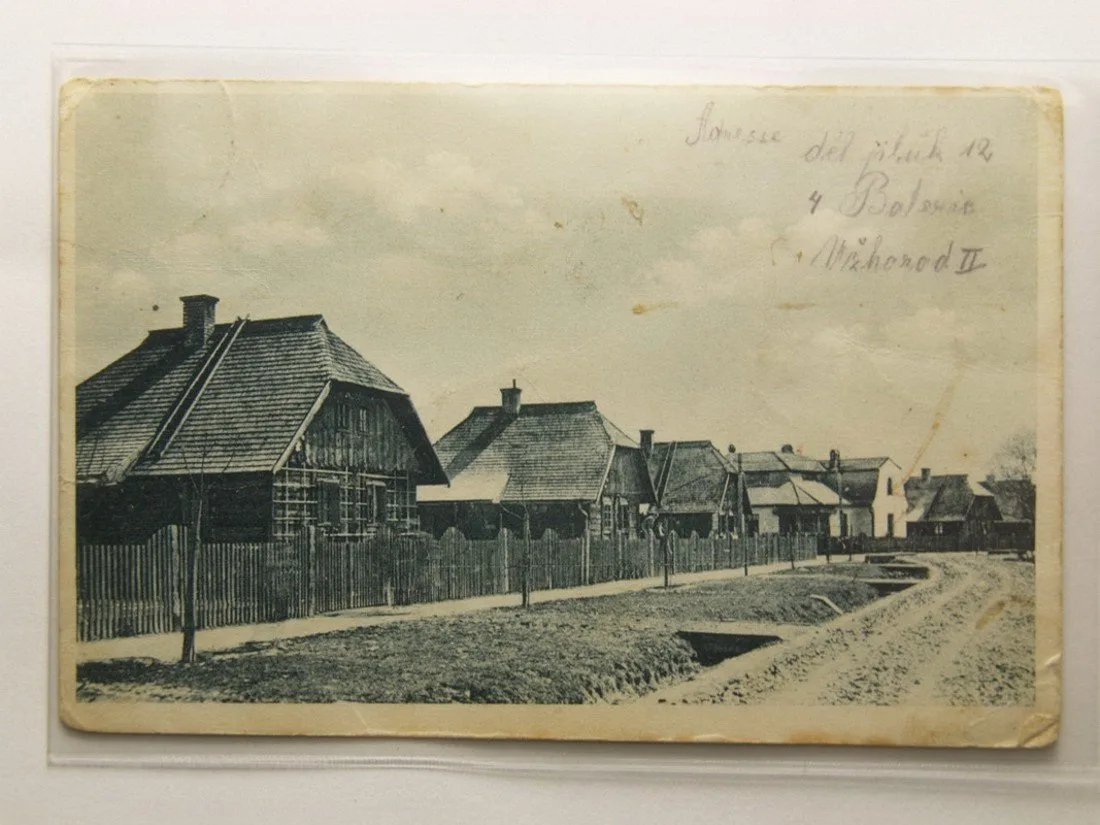 Adresse děl pluk 12
4 Baterie
Užhorod II